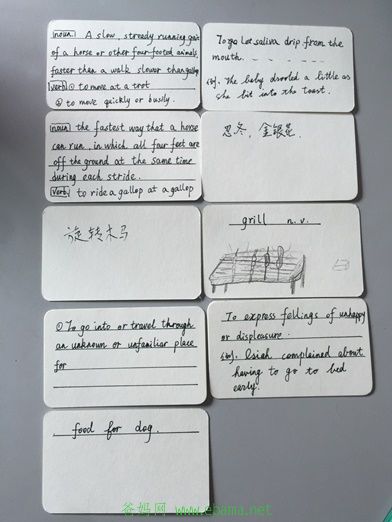 noun. A slow, stready running gait
of a horse or other four-footed animals,
faster than a walk slower than gallop
verb ① to move at a trot
② to move quickly or busily.
To go Let saliva drip from the
mouth.
The baby drooled a little as
she bit into the toast.
noun the fastest way that a horse
can run. in which all four feet are
off the ground at the same time
during each stride.
verb to ride a gallop at a gallop
忍冬，金银花
旋转木马
grill n. v.
① To go into or travel through
an unknown or unfamiliar place
for
To express fellings of unhappy
or displeasure
complained about
having to go to bed
early.
food for dog.
爸妈网 www.ebama.net